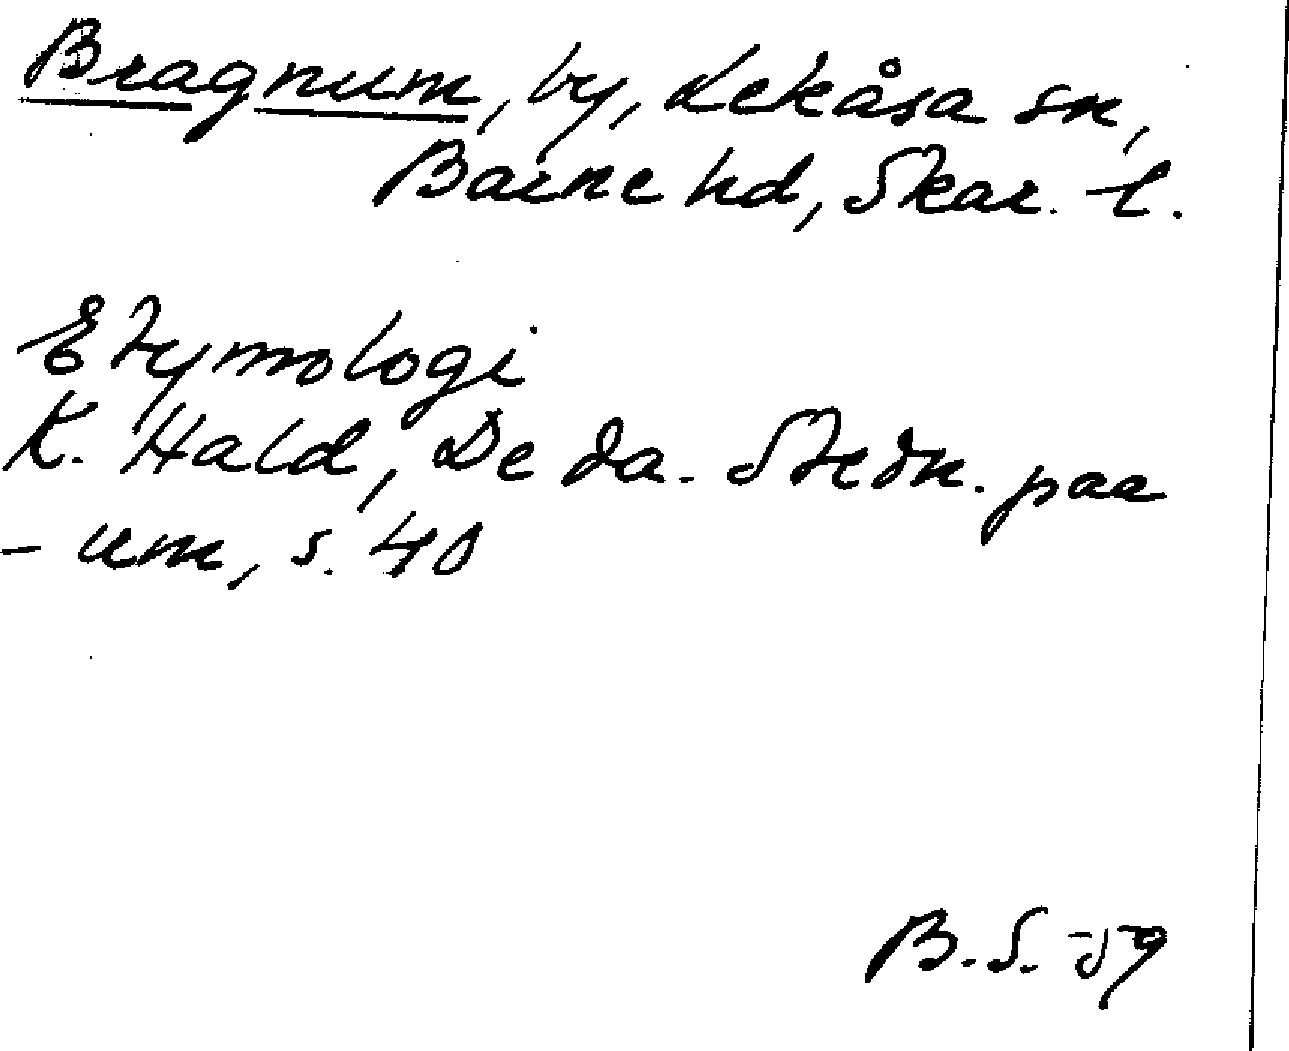 Bragnum, by, Lekåsa sn,
Barne hd, Skar. l.
Etymologi
K. Hald, De da. Stedn. paa
-um, s. 40
B.S. 59